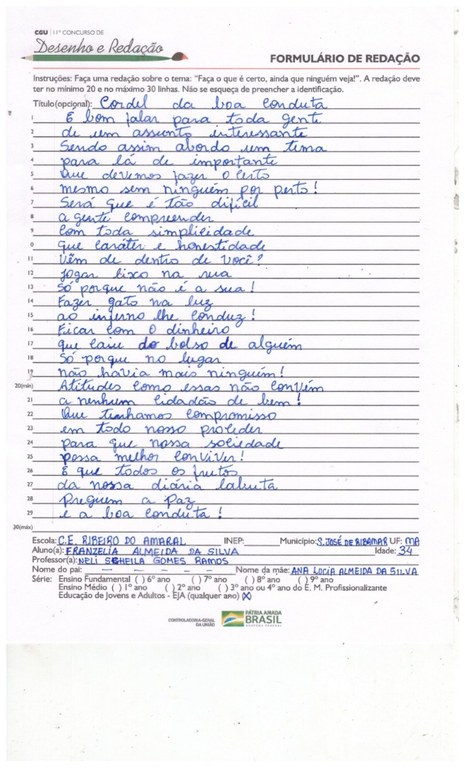 CGU | 11º CONCURSO DE
Desenho e Redação
FORMULÁRIO DE REDAÇÃO
Instruções: Faça uma redação sobre o tema: "Faça o que é certo, ainda que ninguém veja!". A redação deve
ter no mínimo 20 e no máximo 30 linhas. Não se esqueça de preencher a identificação.
Título(opcional): Cordel da boa conduta
1 É bom falar para toda gente
2 de um assunto interessante
3 Sendo assim abordo um tema
4 para lá de importante
5 Que devemos fazer o certo
6 mesmo sem ninguém por perto!
7 Será que é tão difícil
8 a gente compreender
9 Com toda simplicidade
10 que caráter e honestidade
11 Vêm de dentro de você?
12 Jogar lixo na rua
13 Só porque não é a sua!
14 Fazer gato na luz
15 ao inferno lhe conduz!
16 Ficar com o dinheiro
17 que caiu do bolso de alguém
18 Só porque no lugar
19 não havia mais ninguém!
20(mín) Atitudes como essas não convém
21 a nenhum cidadão de bem!
22 Que tenhamos compromisso
23 em todo nosso proceder
24 para que nossa sociedade
25 possa melhor conviver!
26 E que todos os frutos
27 da nossa diária labuta
28 Preguem a paz
29 e a boa conduta!
30(máx)
Escola: C.E. RIBEIRO DO AMARAL INEP: Município: S. JOSÉ DE RIBAMAR UF: MA
Aluno(a): FRANZELIA ALMEIDA DA SILVA Idade: 34
Professor(a): NELI SCHEILA GOMES RAMOS
Nome do pai: — — — — — Nome da mãe: ANA LUCIA ALMEIDA DA SILVA
Série: Ensino Fundamental ( ) 6º ano ( ) 7º ano ( ) 8º ano ( ) 9º ano
Ensino Médio ( ) 1º ano ( ) 2º ano ( ) 3º ano ou 4º ano do E. M. Profissionalizante
Educação de Jovens e Adultos - EJA (qualquer ano) (X)
CONTROLADORIA-GERAL
DA UNIÃO
PÁTRIA AMADA
BRASIL
GOVERNO FEDERAL